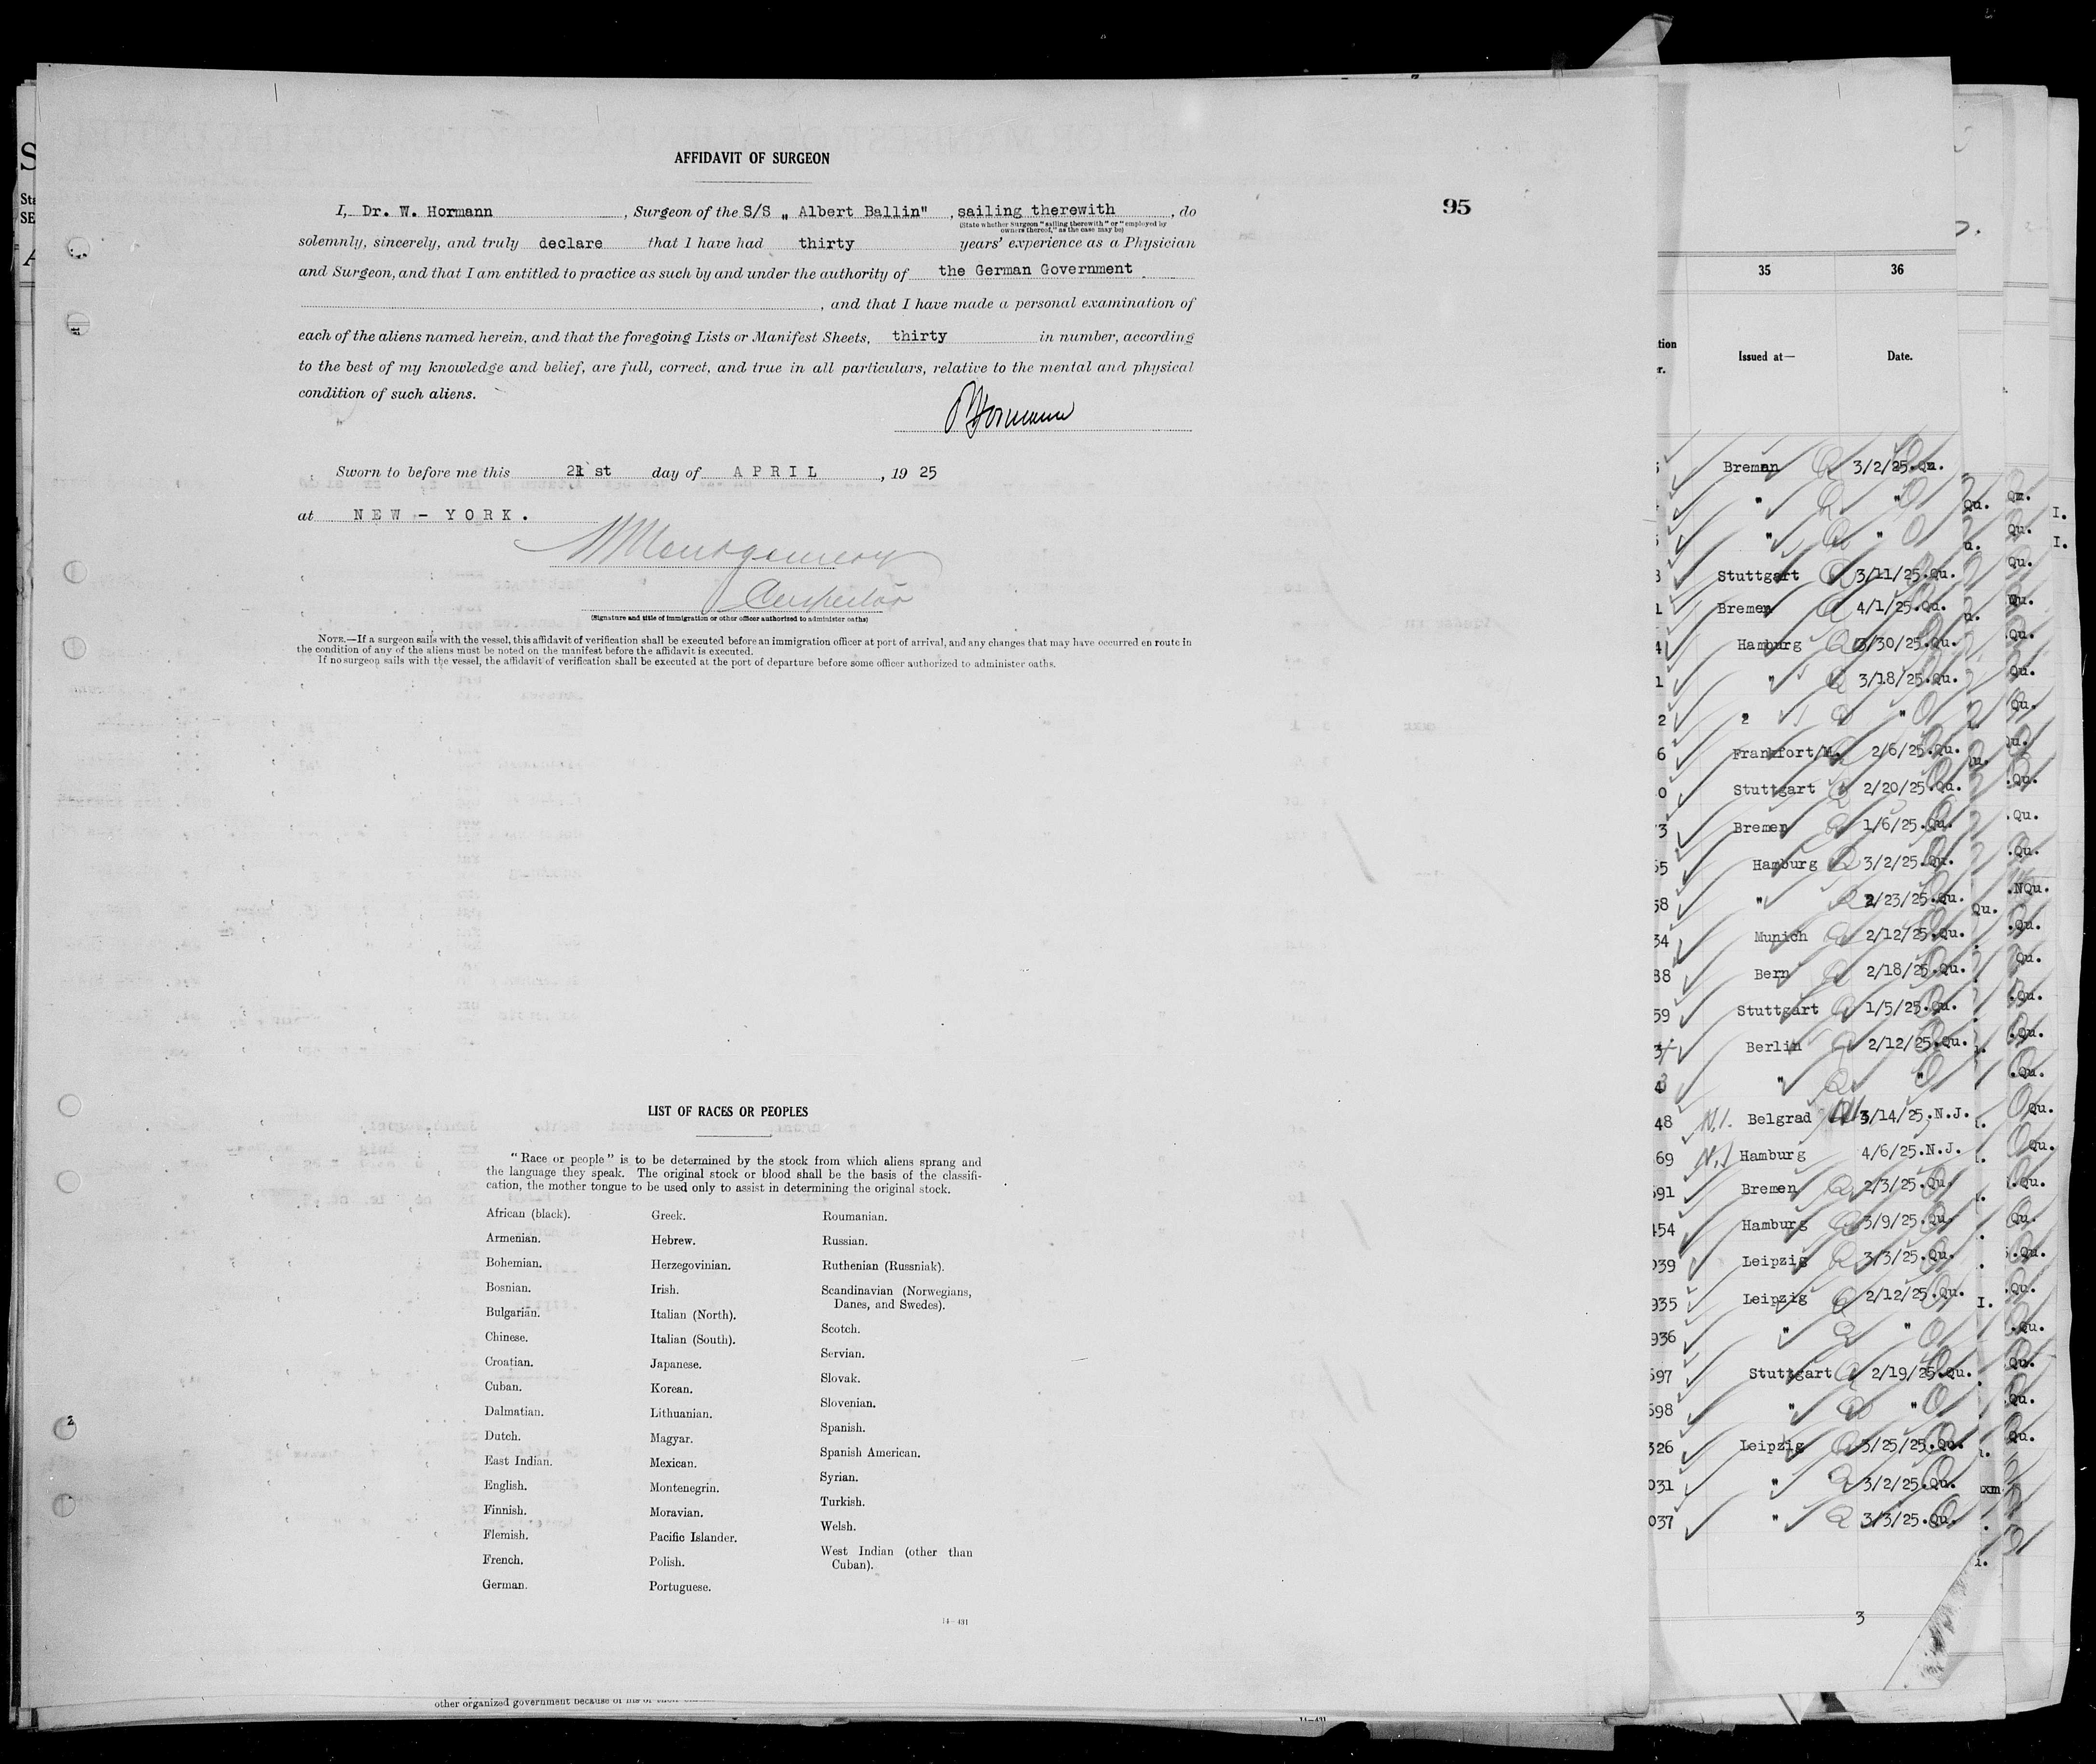 AFFIDAVIT OF SURGEON
95
I, Dr. W. Hormann , Surgeon of the S/S „ Albert Ballin" , sailing therewith , do
(State whether Surgeon "sailing therewith" or "employed by
owners thereof," as the case may be)
solemnly, sincerely, and truly declare that I have had thirty years' experience as a Physician
and Surgeon, and that I am entitled to practice as such by and under the authority of the German Government
, and that I have made a personal examination of
each of the aliens named herein, and that the foregoing Lists or Manifest Sheets, thirty in number, according
to the best of my knowledge and belief, are full, correct, and true in all particulars, relative to the mental and physical
condition of such aliens.
Hormann
Sworn to before me this 21 st day of APRIL , 19 25
at NEW - YORK.
Montgomery
Inspector
(Signature and title of immigration or other officer authorized to administer oaths)
NOTE.—If a surgeon sails with the vessel, this affidavit of verification shall be executed before an immigration officer at port of arrival, and any changes that may have occurred en route in
the condition of any of the aliens must be noted on the manifest before the affidavit is executed.
If no surgeon sails with the vessel, the affidavit of verification shall be executed at the port of departure before some officer authorized to administer oaths.
LIST OF RACES OR PEOPLES
"Race or people" is to be determined by the stock from which aliens sprang and
the language they speak. The original stock or blood shall be the basis of the classifi-
cation, the mother tongue to be used only to assist in determining the original stock.
African (black).
Armenian.
Bohemian.
Bosnian.
Bulgarian.
Chinese.
Croatian.
Cuban.
Dalmatian.
Dutch.
East Indian.
English.
Finnish.
Flemish.
French.
German.
Greek.
Hebrew.
Herzegovinian.
Irish.
Italian (North).
Italian (South).
Japanese.
Korean.
Lithuanian.
Magyar.
Mexican.
Montenegrin.
Moravian.
Pacific Islander.
Polish.
Portuguese.
Roumanian.
Russian.
Ruthenian (Russniak).
Scandinavian (Norwegians,
Danes, and Swedes).
Scotch.
Servian.
Slovak.
Slovenian.
Spanish.
Spanish American.
Syrian.
Turkish.
Welsh.
West Indian (other than
Cuban).
14—431
other organized government because of his or their
35 36
Issued at— Date.
Bremen 3/2/25.Qu.
" "
" "
Stuttgart 3/11/25.Qu.
Bremen 4/1/25.Qu.
Hamburg 3/30/25.Qu.
" 3/18/25.Qu.
" "
Frankfort/M. 2/6/25.Qu.
Stuttgart 2/20/25.Qu.
Bremen 1/6/25.Qu.
Hamburg 3/2/25.Qu.
" 2/23/25.Qu.
Munich 2/12/25.Qu.
Bern 2/18/25.Qu.
Stuttgart 1/5/25.Qu.
Berlin 2/12/25.Qu.
" "
48 Belgrad 3/14/25.N.J.
69 Hamburg 4/6/25.N.J.
91 Bremen 2/3/25.Qu.
454 Hamburg 3/9/25.Qu.
939 Leipzig 3/3/25.Qu.
935 Leipzig 2/12/25.Qu.
936 " "
597 Stuttgart 2/19/25.Qu.
598 " "
326 Leipzig 3/25/25.Qu.
031 " 3/2/25.Qu.
037 " 3/3/25.Qu.
3